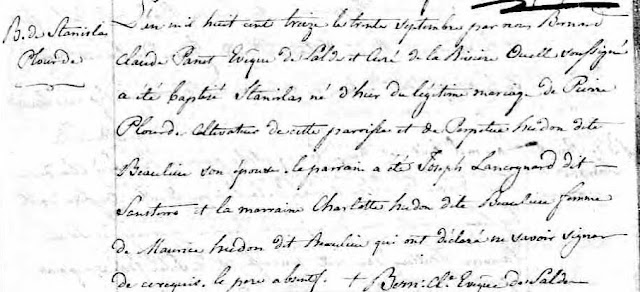 B. de Stanislas
Plourde
L'an mil huit cent treize le trente septembre par nous Bernard
Claude Panet Evêque de Saldes et Curé de la Rivière Ouelle soussigné
a été baptisé Stanislas né d'hier du légitime mariage de Pierre
Plourde cultivateur de cette parroisse et de Perpetue hudon dite
Beaulieu son épouse. le parrain a été Joseph Lancognard dit
Santerre et la marraine Charlotte hudon dite Beaulieu femme
de Maurice hudon dit Beaulieu qui ont déclaré ne savoir signer
de ce requis. le pere absent. + Bern. Cl. Evêque de Saldes